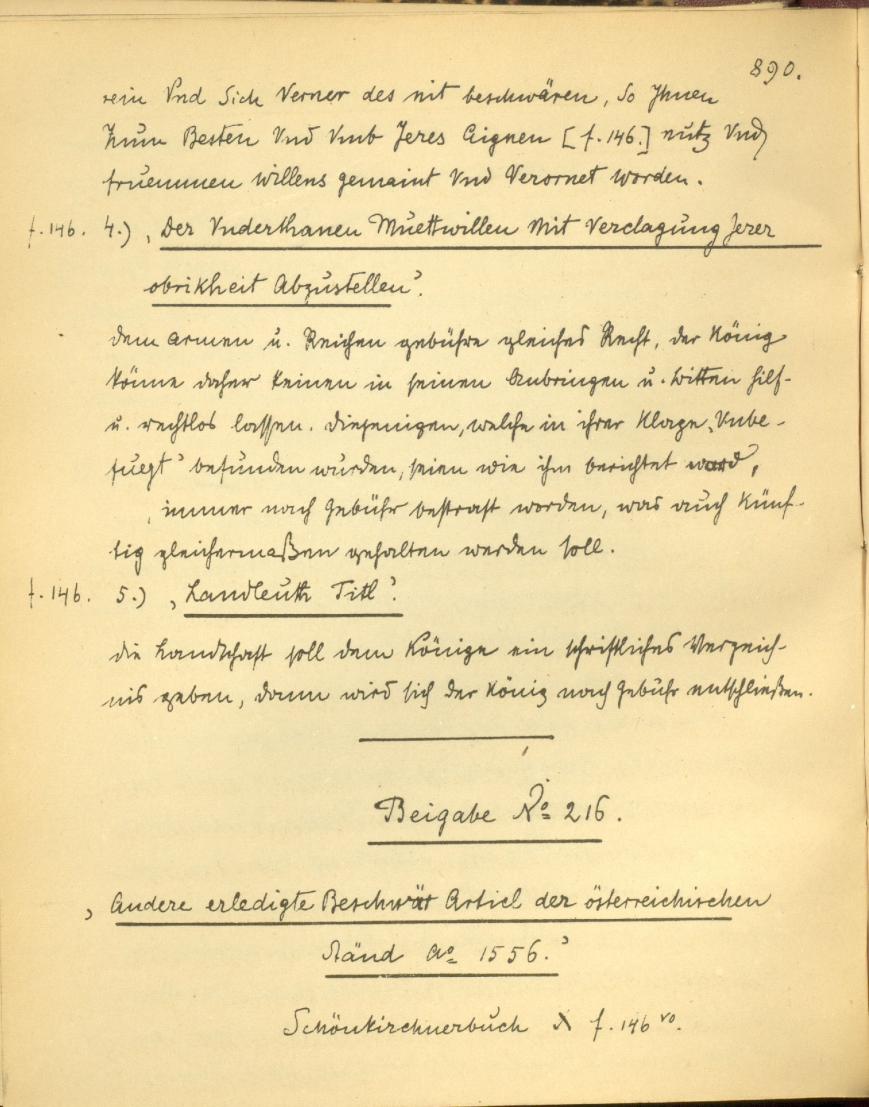 890.
sein Vnd Sich Verner des nit beschwären, So Ihnen
Zum Besten Vnd Vmb Jeres Aignen [f. 146.] nutz Vnd
fruemmen willens gemaint Vnd Verornet worden.
f. 146. 4.) ‚Der Vnderthanen Muettwillen Mit Verclagung Jerer
obrikheit Abzustellen’.
dem armen u. Reichen gebühre gleiches Recht, der König
könne daher keinen in seinen Anbringen u. bitten hilf-
u. rechtlos lassen. diejenigen, welche in ihrer Klage ‚Vnbe-
fuegt’ befunden wurden, seien wie ihm berichtet ward,
immer nach Gebühr bestraft worden, was auch künf-
tig gleichermaßen gehalten werden soll.
f. 146. 5.) ‚Landleuth Titl’.
die Landschaft soll dem Könige ein schriftliches Verzeich-
nis geben, dann wird sich der König nach Gebühr entschließen.
Beigabe No 216.
‚Andere erledigte Beschwär Articl der österreichischen
Ständ Ao 1556.’
Schönkirchnerbuch f. 146 vo.